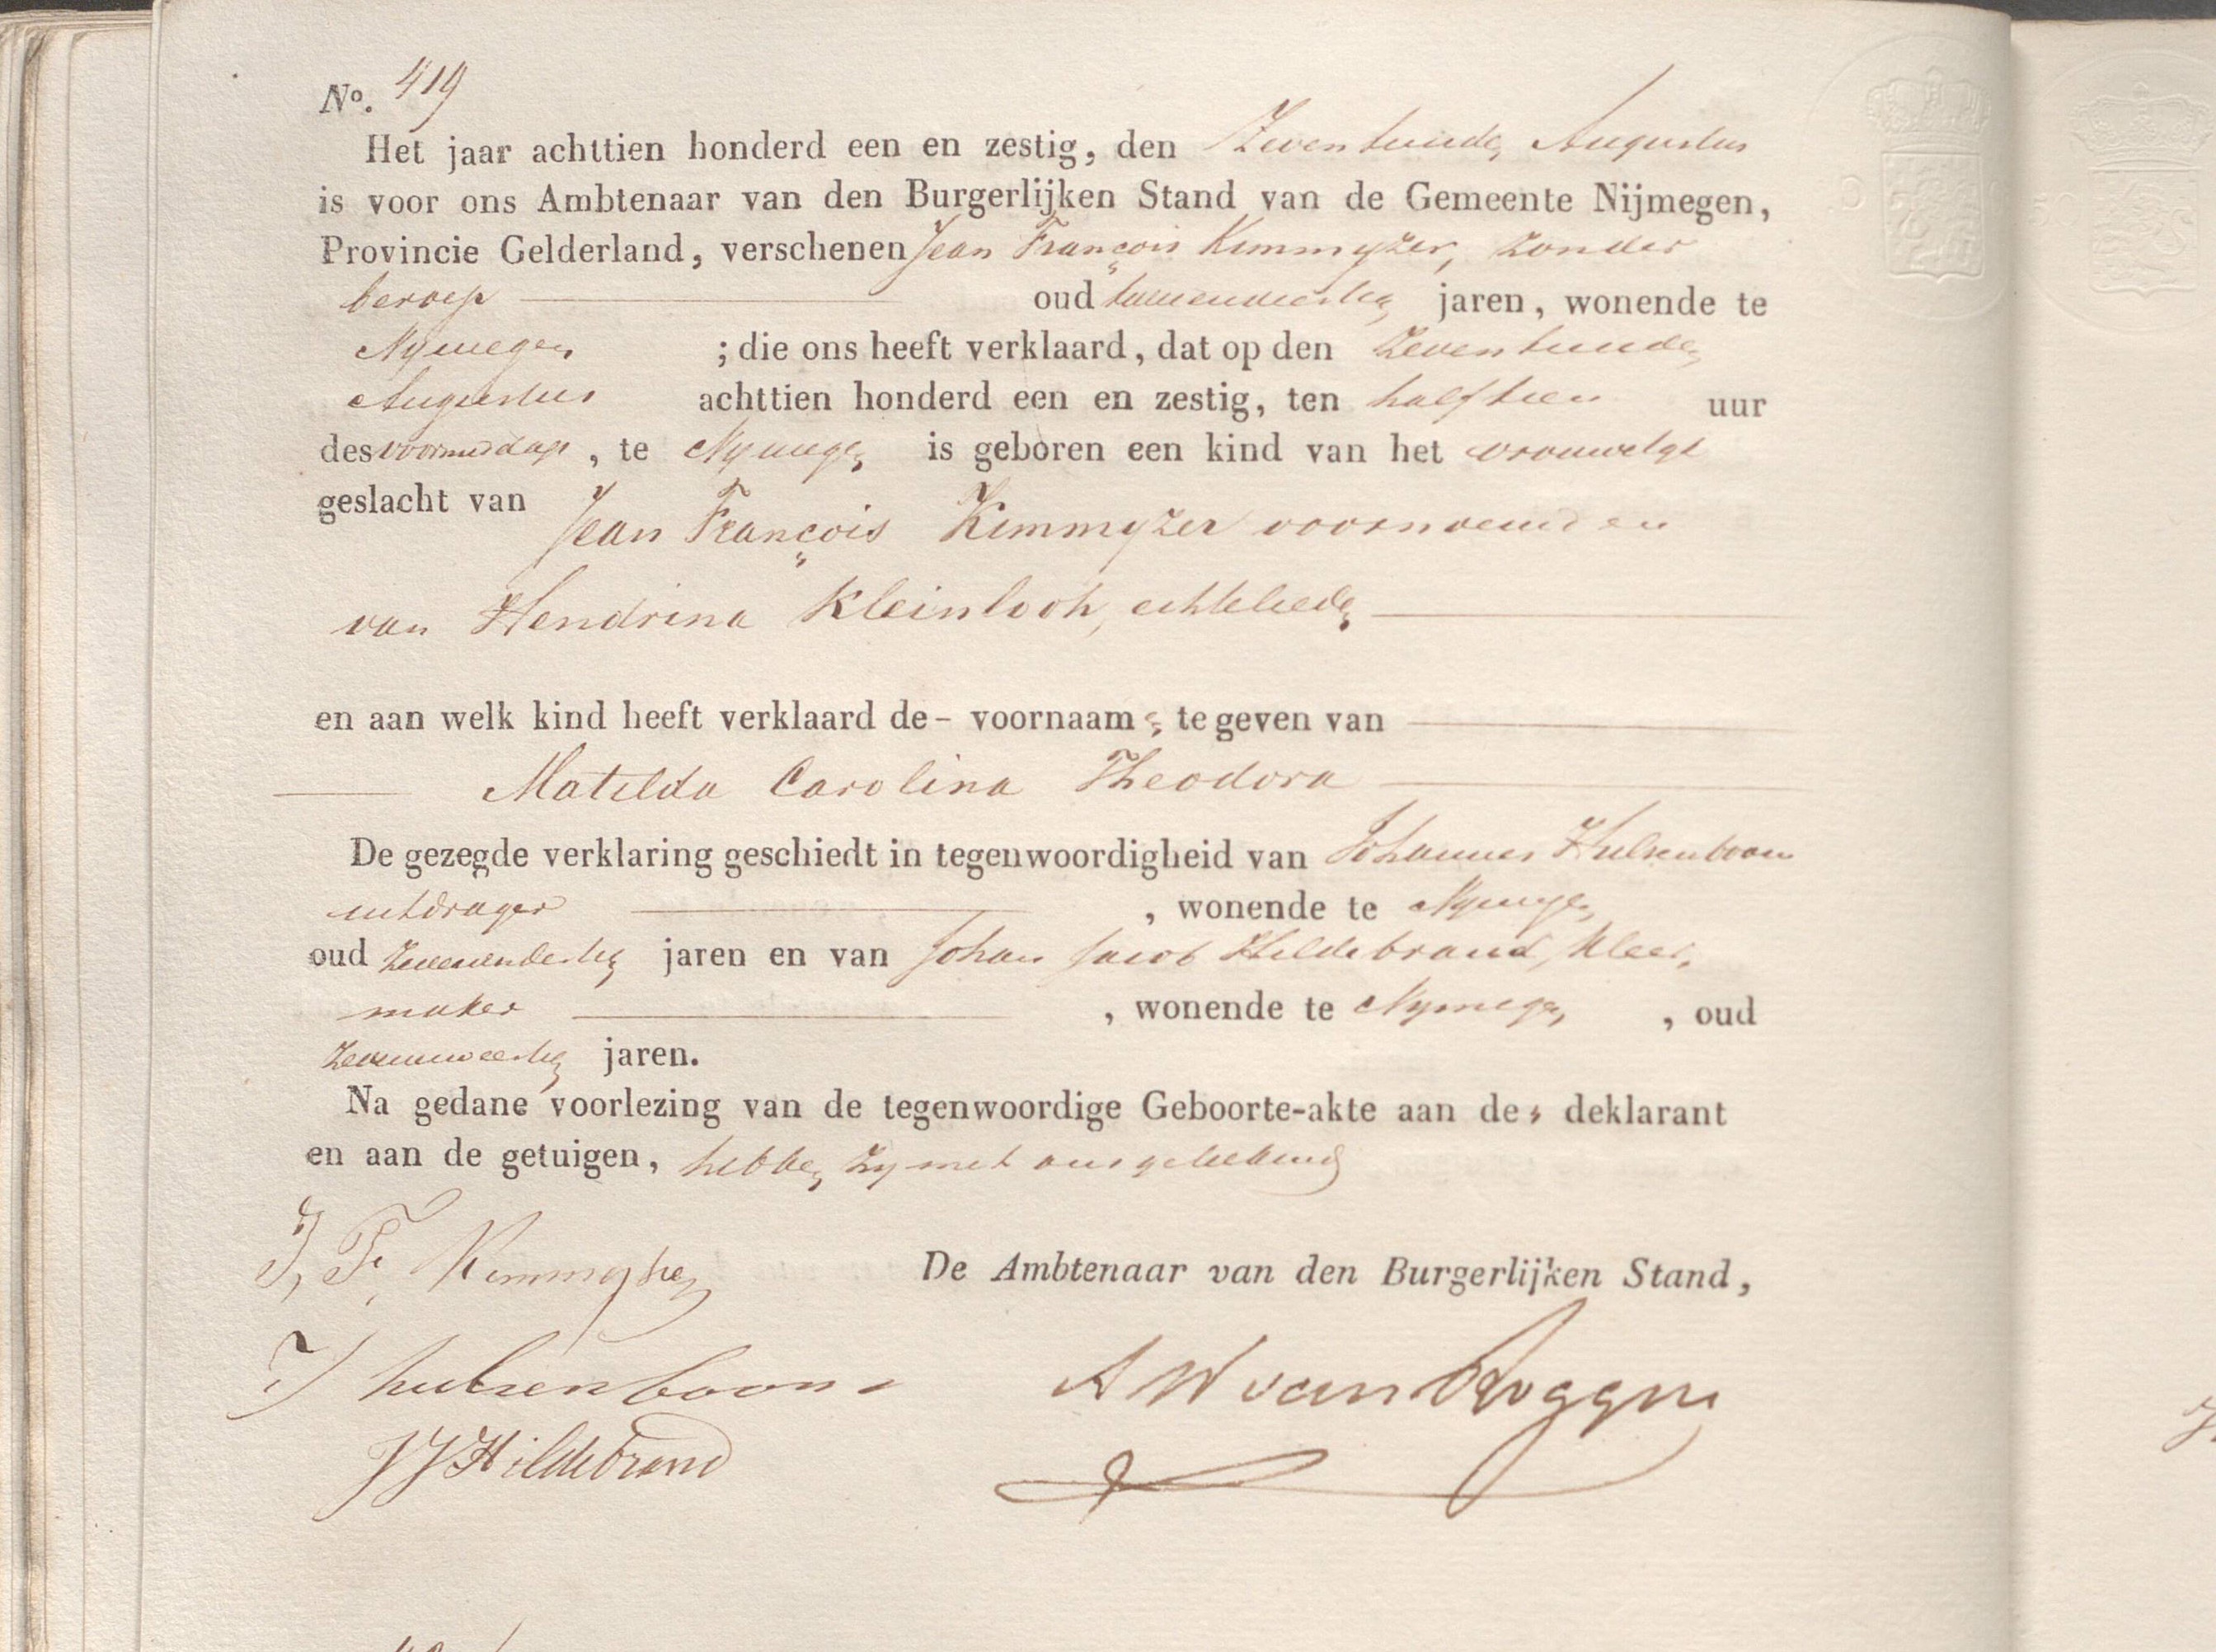 No. 419
Het jaar achttien honderd een en zestig, den Zeventiende Augustus
is voor ons Ambtenaar van den Burgerlijken Stand van de Gemeente Nijmegen,
Provincie Gelderland, verschenen Jean François Kemmyzer, zonder
beroep oud jaren, wonende te
Nymegen ; die ons heeft verklaard, dat op den Zeventiende
Augustus achttien honderd een en zestig, ten half tien uur
des voormiddags, te Nymegen is geboren een kind van het vrouwelyk
geslacht van Jean François Kemmyzer voornoemd en
van Hendrina Kleinlooh, echtelieden
en aan welk kind heeft verklaard de - voornaamen te geven van
Matilda Carolina Theodora
De gezegde verklaring geschiedt in tegenwoordigheid van Johannes Hulsenboom
uitdrager , wonende te Nymegen
oud jaren en van Johan Jacob Hildebrand, kleer,
maker , wonende te Nymegen , oud
jaren.
Na gedane voorlezing van de tegenwoordige Geboorte-akte aan de deklarant
en aan de getuigen, hebben zy met ons geteekend
J, F, Kemmyzer
J hulsenboom
JJ Hildebrand
De Ambtenaar van den Burgerlijken Stand,
A W van Roggen